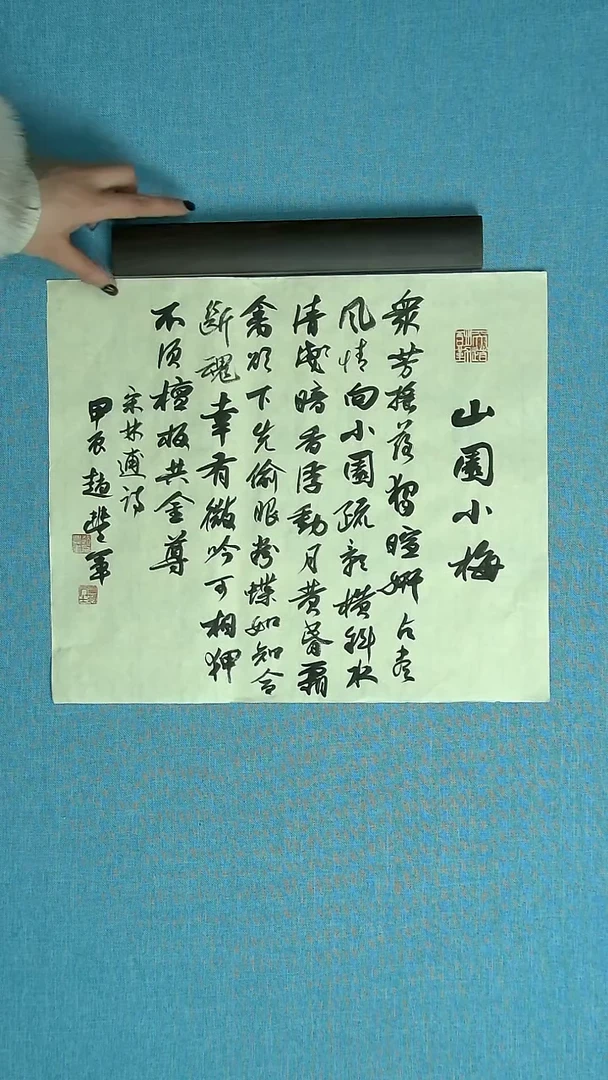 山園小梅
眾芳摇落獨暄妍占尽
风情向小園疏影横斜水
清淺暗香浮動月黄昏霜
禽欲下先偷眼粉蝶如知合
斷魂幸有微吟可相狎
不須檀板共金尊
宋林逋詩
甲辰趙